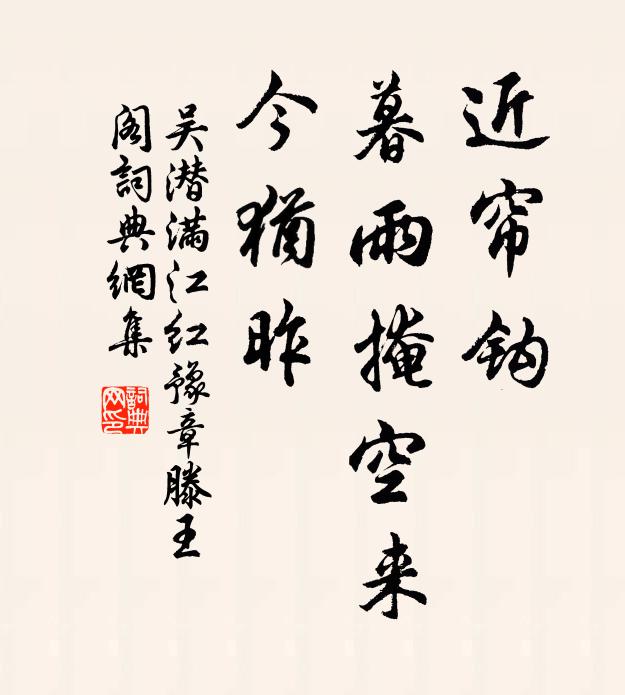 近帘钩
暮雨掩空来
今犹昨
吴潜满江红豫章滕王
阁詞典網集
詞典
网印